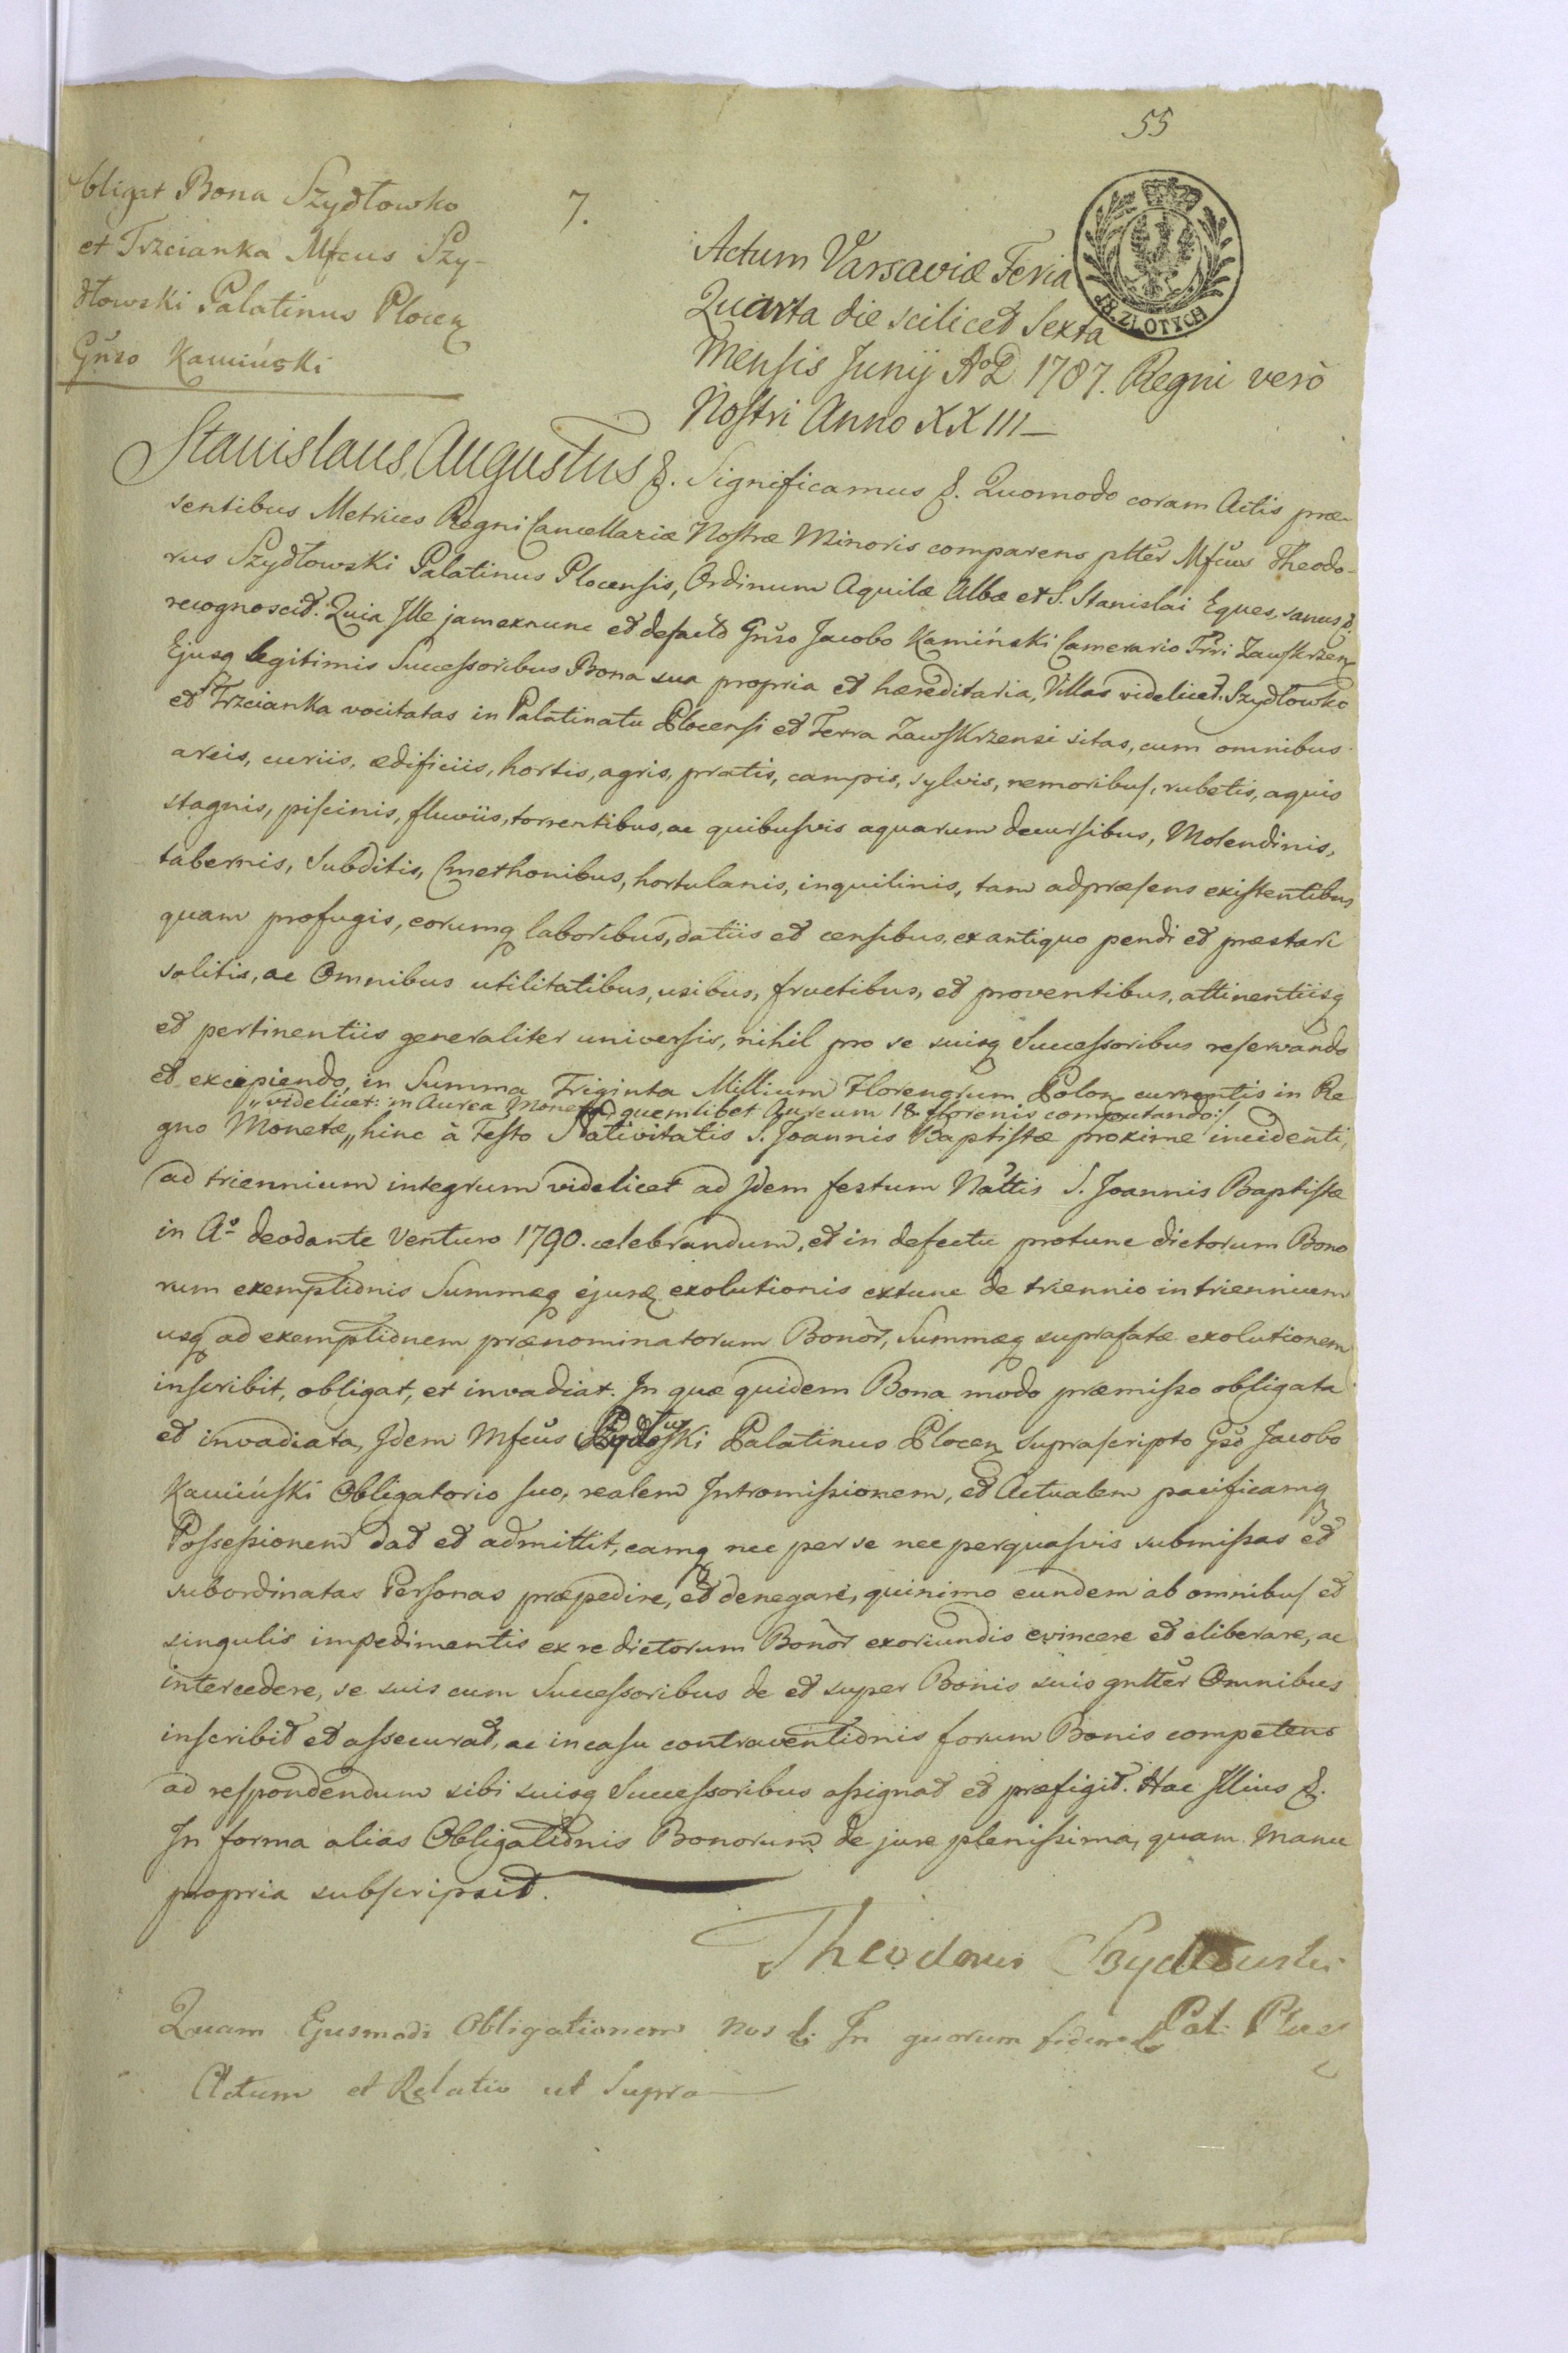 55
7.
Obligat Bona Szydłowko
et Trzcianka Mfcus Szy-
dłowski Palatinus Plocen
Gñso Kamiński
18. ZŁOTYCH
Actum Varsaviæ Feria
Quarta die scilicet Sexta
Mensis Junij AoD 1787. Regni verò
Nostri Anno XXIII
Stanislaus Augustus &. Significamus &. Quomodo coram Actis præ-
sentibus Metrices Regni Cancellariæ Nostræ Minoris comparens pltter Mfcus Theodo-
rus Szydłowski Palatinus Plocensis, Ordinum Aquilæ Albæ et S. Stanislai Eques, sanus &.
recognoscit. Quia Ille jamexnunc et defacto Gñso Jacobo Kamiński Camerario Trri Zawskrzen
Ejusq legitimis Successoribus Bona sua propria et hæreditaria, Villas videlicet Szydłowko
et Trzcianka vocitatas in Palatinatu Plocensi et Terra Zawskrzensi sitas, cum omnibus
areis, curiis, ædificiis, hortis, agris, pratis, campis, sylvis, nemoribus, rubetis, aquis
stagnis, piscinis, fluviis, torrentibus, ac quibusvis aquarum decursibus, Molendinis,
tabernis, Subditis, Cmethonibus, hortulanis, inquilinis, tam adpræsens existentibus
quam profugis, eorumq laboribus, datiis et censibus, ex antiquo pendi et præstari
solitis, ac Omnibus utilitatibus, usibus, fructibus, et proventibus, attinentiisq
et pertinentiis generaliter universis, nihil pro se suisq Successoribus reservando
et excipiendo, in Summa Triginta Millium Florenorum Polon currentis in Re
„videlicet: in Aurea Moneta quemlibet Aureum 18. florenis computando:/
gno Monetæ „ hinc à Festo Nativitatis S. Joannis Baptistæ proxime incidenti,
ad triennium integrum videlicet ad Idem festum Nattis S. Joannis Baptistæ
in Aº deodante Venturo 1790. celebrandum, et in defectu protunc dictorum Bono
rum exemptionis Summæq ejusd exolutionis extunc de triennio in triennium
usq ad exemptionem prænominatorum Bonor, Summæq suprafatæ exolutionem
inscribit, obligat, et invadiat. In quæ quidem Bona modo præmisso obligata
et invadiata, Idem Mfcus Szydłowski Palatinus Plocen suprascripto Gso Jacobo
Kamiński Obligatorio suo, realem Intromissionem, et Actualem pacificamq
Possessionem dat et admittit, eamq nec per se nec perquasvis submissas et
subordinatas Personas præpedire, et denegare, quinimo eundem ab omnibus et
singulis impedimentis ex re dictorum Bonor exoriundis evincere et eliberare, ac
intercedere, se suis cum Successoribus de et super Bonis suis gnlter Omnibus
inscribit et assecurat, ac incasu contraventionis forum Bonis competens
ad respondendum sibi suisq Successoribus assignat et præfigit. Hac Illius &.
In forma alias Obligationis Bonorum de jure plenissima, quam Manu
propria subscripsit.
Theodorus Szydłowski
Pat: Plocen
Quam Ejusmodi Obligationem Nos &: In quorum fidem &
Actum et Relatio ut Supra